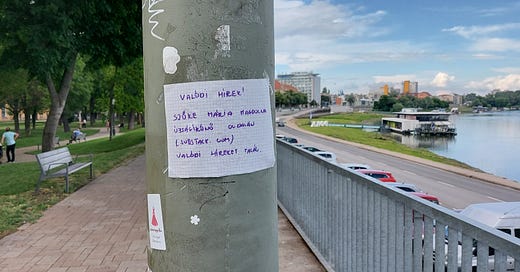 VALÓDI HÍREK!
SZŐKE MÁRIA MAGDOLNA
ÚJSÁGÍRÓNŐ OLDALÁN
(SUBSTACK.COM)
VALÓDI HÍREKET TALÁL